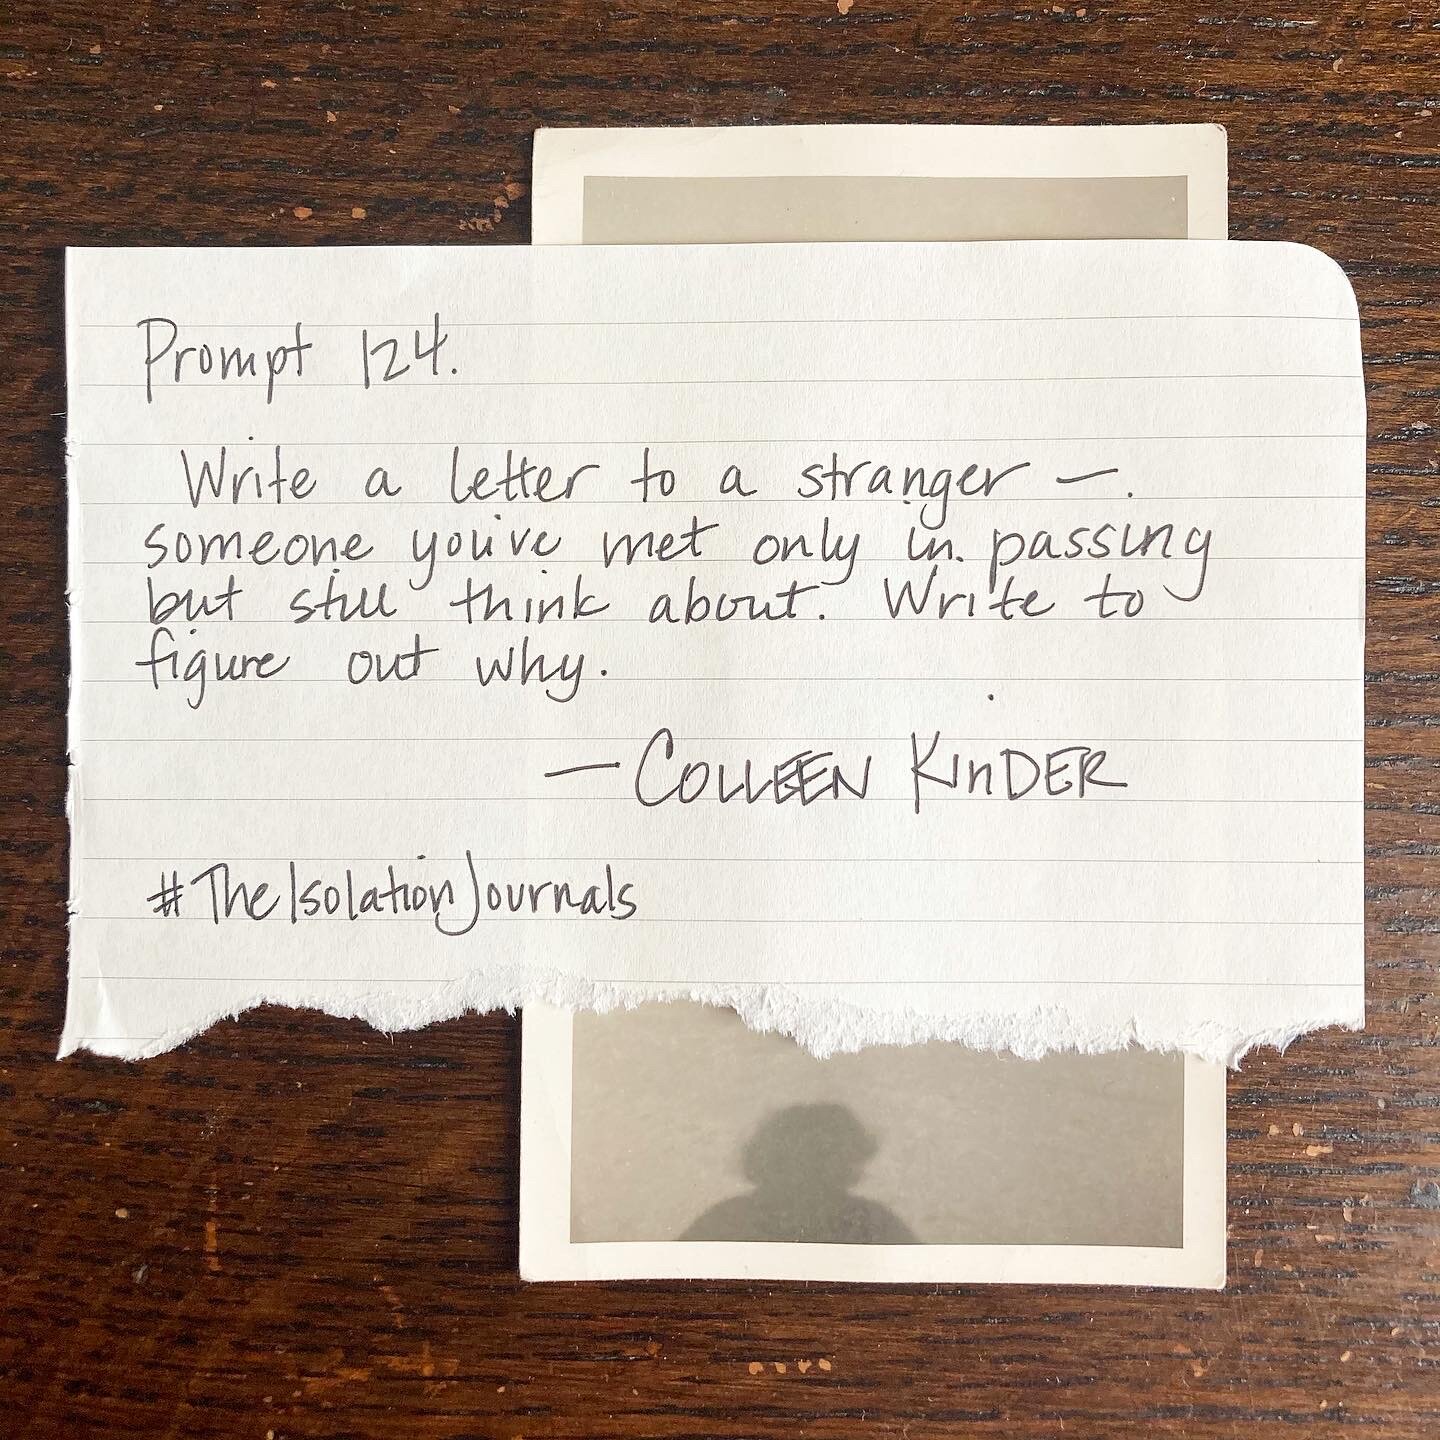 Prompt 124.
Write a letter to a stranger —
someone you've met only in passing
but still think about. Write to
figure out why.
— COLLEEN KINDER
#TheIsolationJournals